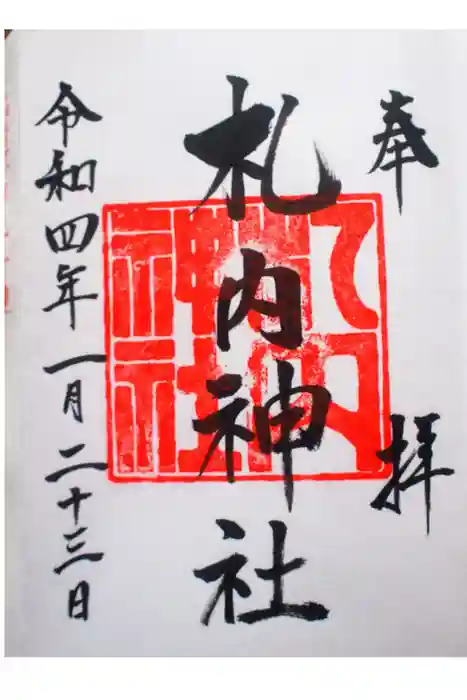 奉拝
札内神社
令和四年一月二十三日
札内神社